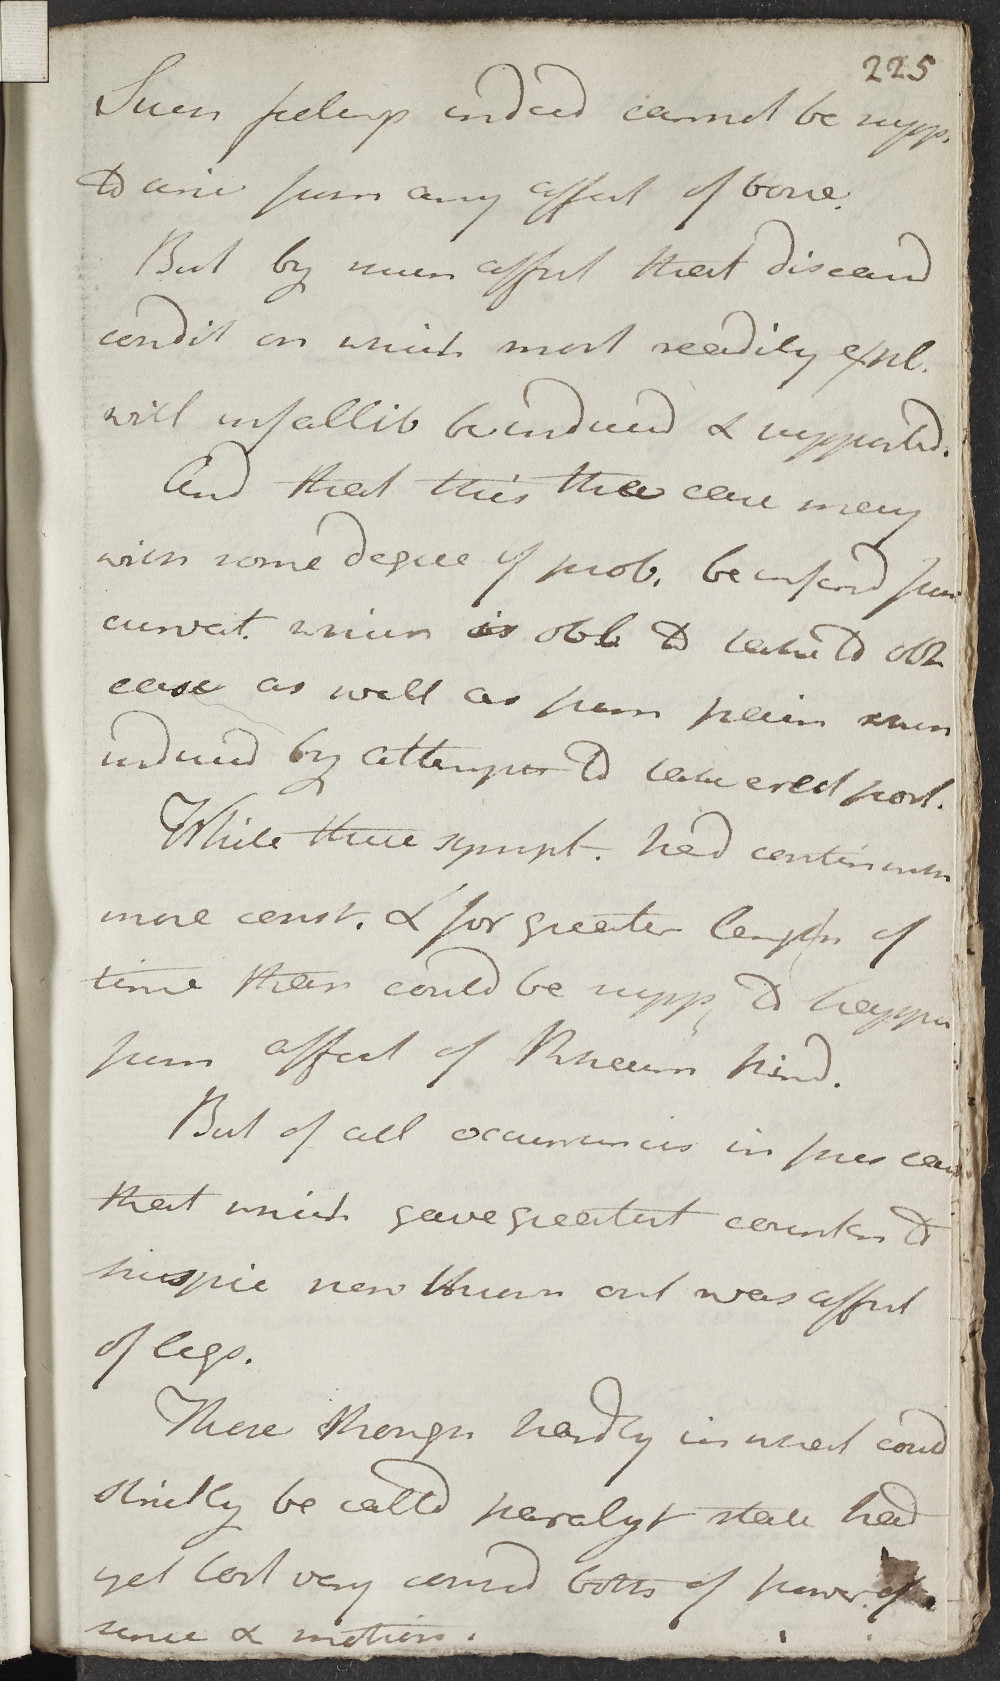 225
Such feelings indeed cannot be supp.
to arise from any affect of bone.
But by such affect that diseased
condit on which most readily expl.
will infallib be induced & supported.
And that this the case may
with some degree of prob. be inferd from
curvat. which is obl to take to obt
ease as well as from pain when
induced by attempts to take erect post.
While these sympt. had continued
more const. & for greater length of
time than could be supp to happen
from affect of Rheum kind.
But of all occurrences in pres case
that which gave greatest counten to
suspic now thrown out was affect
of legs.
These though hardly in what could
strictly be calld paralyt state had
yet lost very consid both of power of
sense & motion.